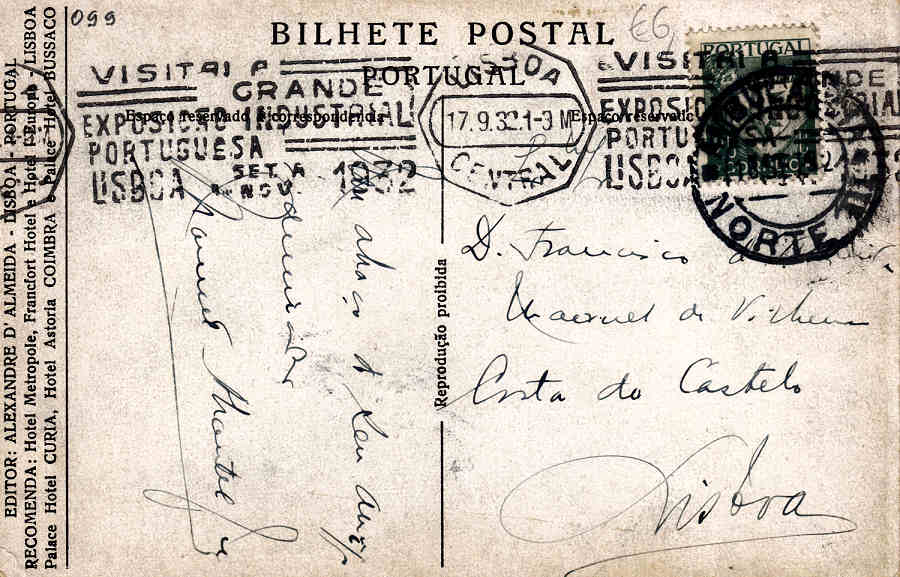 099
€6
BILHETE POSTAL
PORTUGAL
EDITOR: ALEXANDRE D' ALMEIDA - LISBOA - PORTUGAL
RECOMENDA: Hotel Metropole, Francfort Hotel e Hotel d'Europa - LISBOA
Palace Hotel CURIA, Hotel Astoria COIMBRA e Palace Hotel BUSSACO
VISITAI A
GRANDE
EXPOSIÇÃO INDUSTRIAL
PORTUGUESA
LISBOA SET. A NOV. 1932
Espaço reservado á correspondencia
LISBOA
17.9.32.1-3
CENTRAL
VISITAI A
GRANDE
EXPOSIÇ
PORTU
LISBOA
Espaço reservado
PORTUGAL
NORTE
Reprodução proibida
Um abraço do seu
Manuel
D. Francisco
Manuel de Vilhena
Costa do Castelo
Lisboa